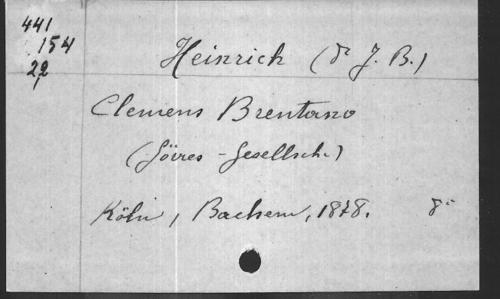 441
154
22
Heinrich (Dr J. B.)
Clemens Brentano
(Görres-Gesellsch.)
Köln, Bachem, 1878. 8°